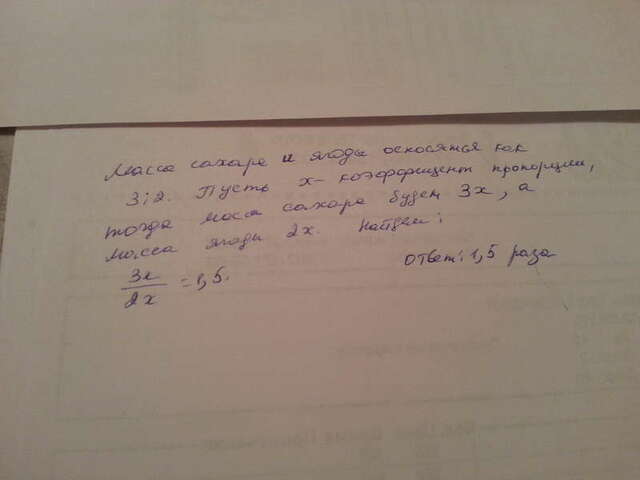 Масса сахара и ягоды относятся как
3:2. Пусть x - коэффициент пропорции,
тогда масса сахара будет 3x, а
масса ягоды 2x. Найдем:
3x/2x = 1,5.
Ответ: 1,5 раза